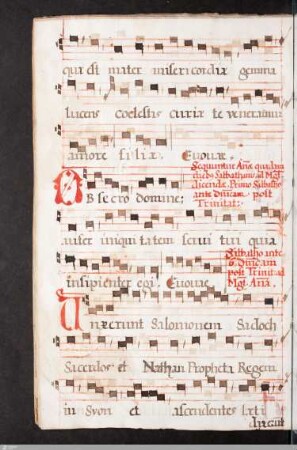 qui est mater misericordia gemma
lucens coelestis curia te veneramur
amore filiæ. Euouæ.
Sequuntur Añæ quædam
diebus Sabbathinis ad Mgt
dicendæ. Primo Sabbatho
ante Dnicam post
Trinitat:
OBsecro domine;
aufer iniquitatem servi tui quia
insipienter egi. Euouae
Sabbatho ante
Dnicam
post Trinitat
Mgt Aña.
Unxerunt Salomonem Sadoch
Sacerdos et Nathan Propheta Regem
in Gyon et ascendentes læti
dixerunt